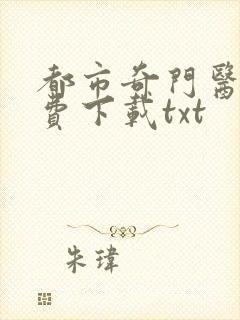 都市奇門醫
費下載txt
朱瑋